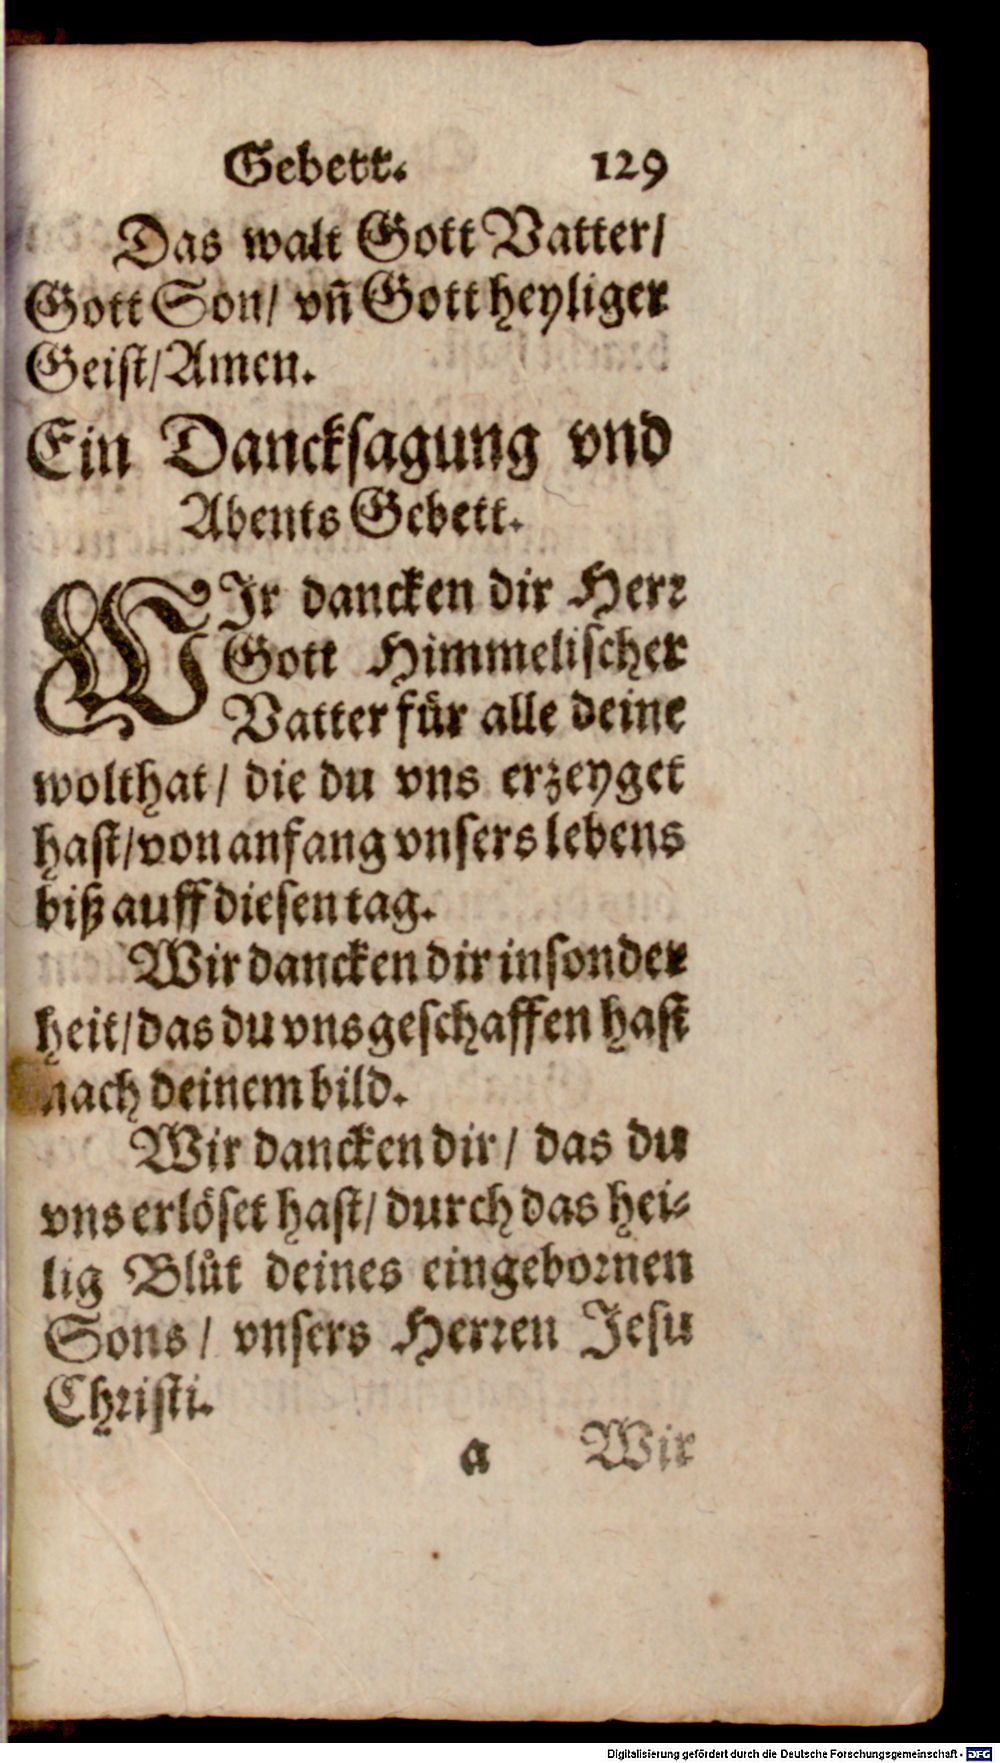 Gebett. 129
Das walt Gott Vatter/
Gott Son/ vñ Gott heyliger
Geist/Amen.
Ein Dancksagung vnd
Abents Gebett.
WIr dancken dir Herr
Gott Himmelischer
Vatter für alle deine
wolthat/ die du vns erzeyget
hast/von anfang vnsers lebens
biß auff diesen tag.
Wir dancken dir in sonder
heit/das du vns geschaffen hast
nach deinem bild.
Wir dancken dir/ das du
vns erlöset hast/durch das hei-
lig Blůt deines eingebornen
Sons/ vnsers Herren Jesu
Christi.
a Wir
Digitalisierung gefördert durch die Deutsche Forschungsgemeinschaft - DFG